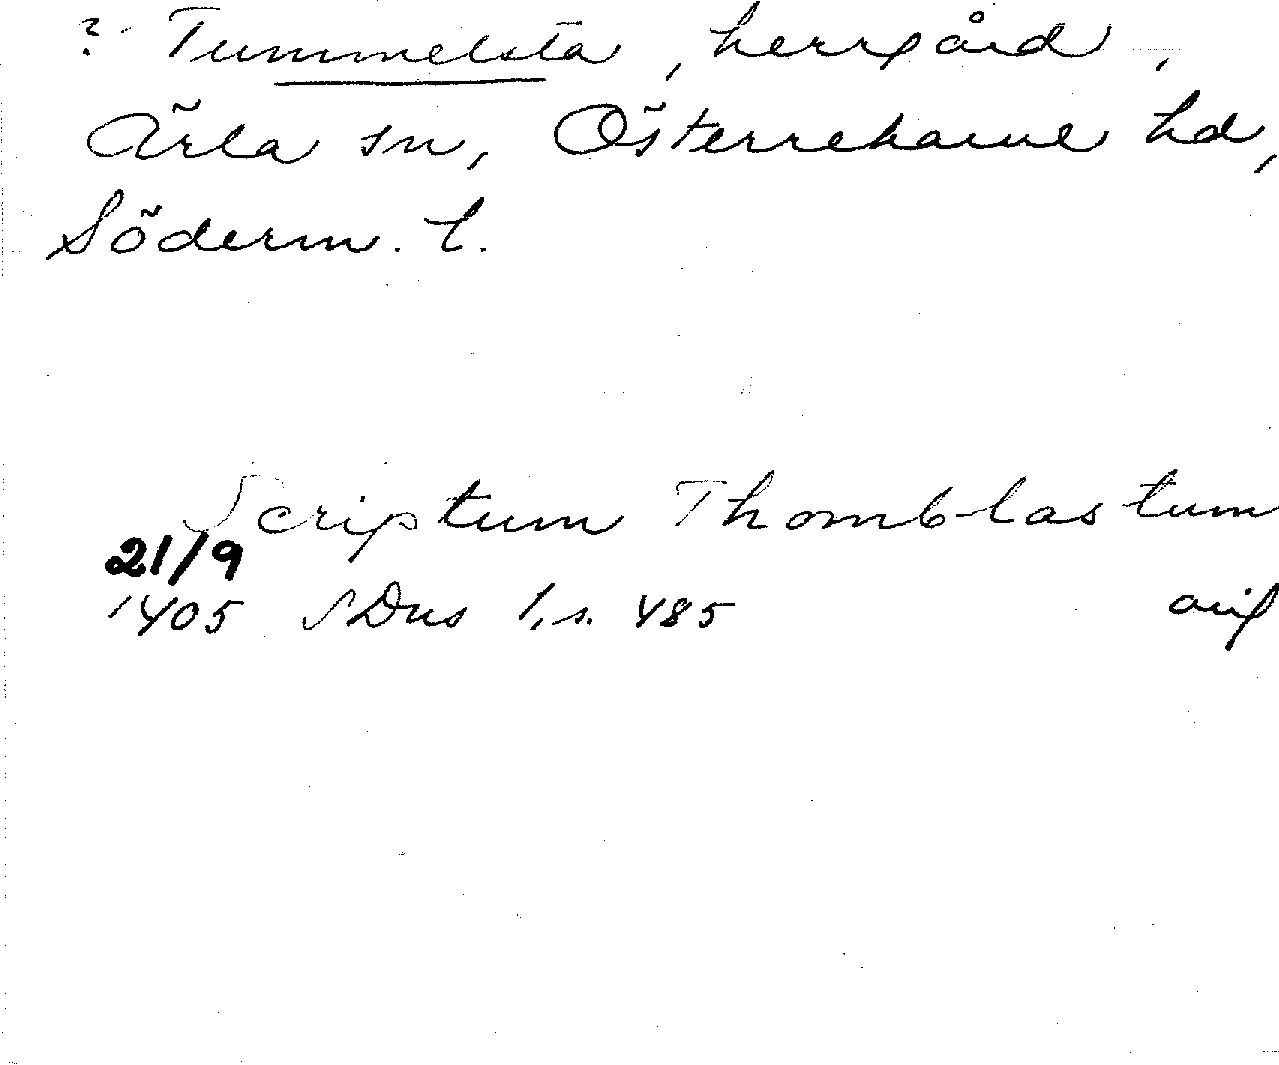 ? Tummelsta, herrgård,
Ärla sn, Österrekarne hd,
Söderm. l.
Scriptum Thomblastum
21/9
1405 SDns 1, s. 485 orig